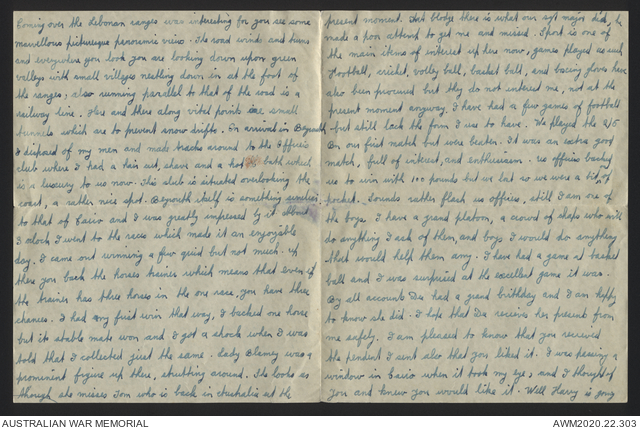 Coming over the Lebanon ranges was interesting for you see some
marvellous picturesque panoramic views. The road winds and turns
and everywhere you look you are looking down upon green
valleys with small villages nestling down in at the foot of
the ranges, also running parallel to that of the road is a
railway line. Here and there along vital points are small
tunnels which are to prevent snow drifts. On arrival in Beyrouth
I disposed of my men and made tracks around to the Officers
club where I had a hair cut, shave and a hot bath which
is a luxury to us now. This club is situated overlooking the
coast, a rather nice spot. Beyrouth itself is something similar
to that of Cairo and I was greatly impressed by it. About
1 oclock I went to the races which made it an enjoyable
day. I came out winning a few quid but not much. Up
there you back the horses trainer which means that even if
the trainer has three horses in the one race, you have three
chances. I had my first win that way, I backed one horse
but its stable mate won and I got a shock when I was
told that I collected just the same. Lady Blamey was a
prominent figure up there, strutting around. She looks as
though she misses Tom who is back in Australia at the
present moment. Not bloody there is what our sgt major did, he
made a poor attempt to get me and missed. Sport is one of
the main items of interest up here now, games played as such
Football, cricket, volley ball, basket ball, and boxing gloves have
also been procured but they do not interest me, not at the
present moment anyway. I have had a few games of football
but still lack the form I use to have. We played the 2/5
Bn our first match but were beaten. It was an extra good
match, full of interest, and enthusiasm. us officers backed
us to win with 100 pounds but we lost so we were a bit of
pocket. Sounds rather flash us officers, still I am one of
the boys. I have a grand platoon, a crowd of chaps who will
do anything I ask of them, and boys I would do anything
that would help them any. I have had a game at basket
ball and I was surprised at the excellent game it was.
By all accounts Da had a grand birthday and I am happy
to know she did. I hope that Da receives her present from
me safely. I am pleased to know that you received
the pendent I sent also that you liked it. I was passing a
window in Cairo when it took my eye, and I thought of
you and knew you would like it. Well Harry is going
AUSTRALIAN WAR MEMORIAL
AWM2020.22.303